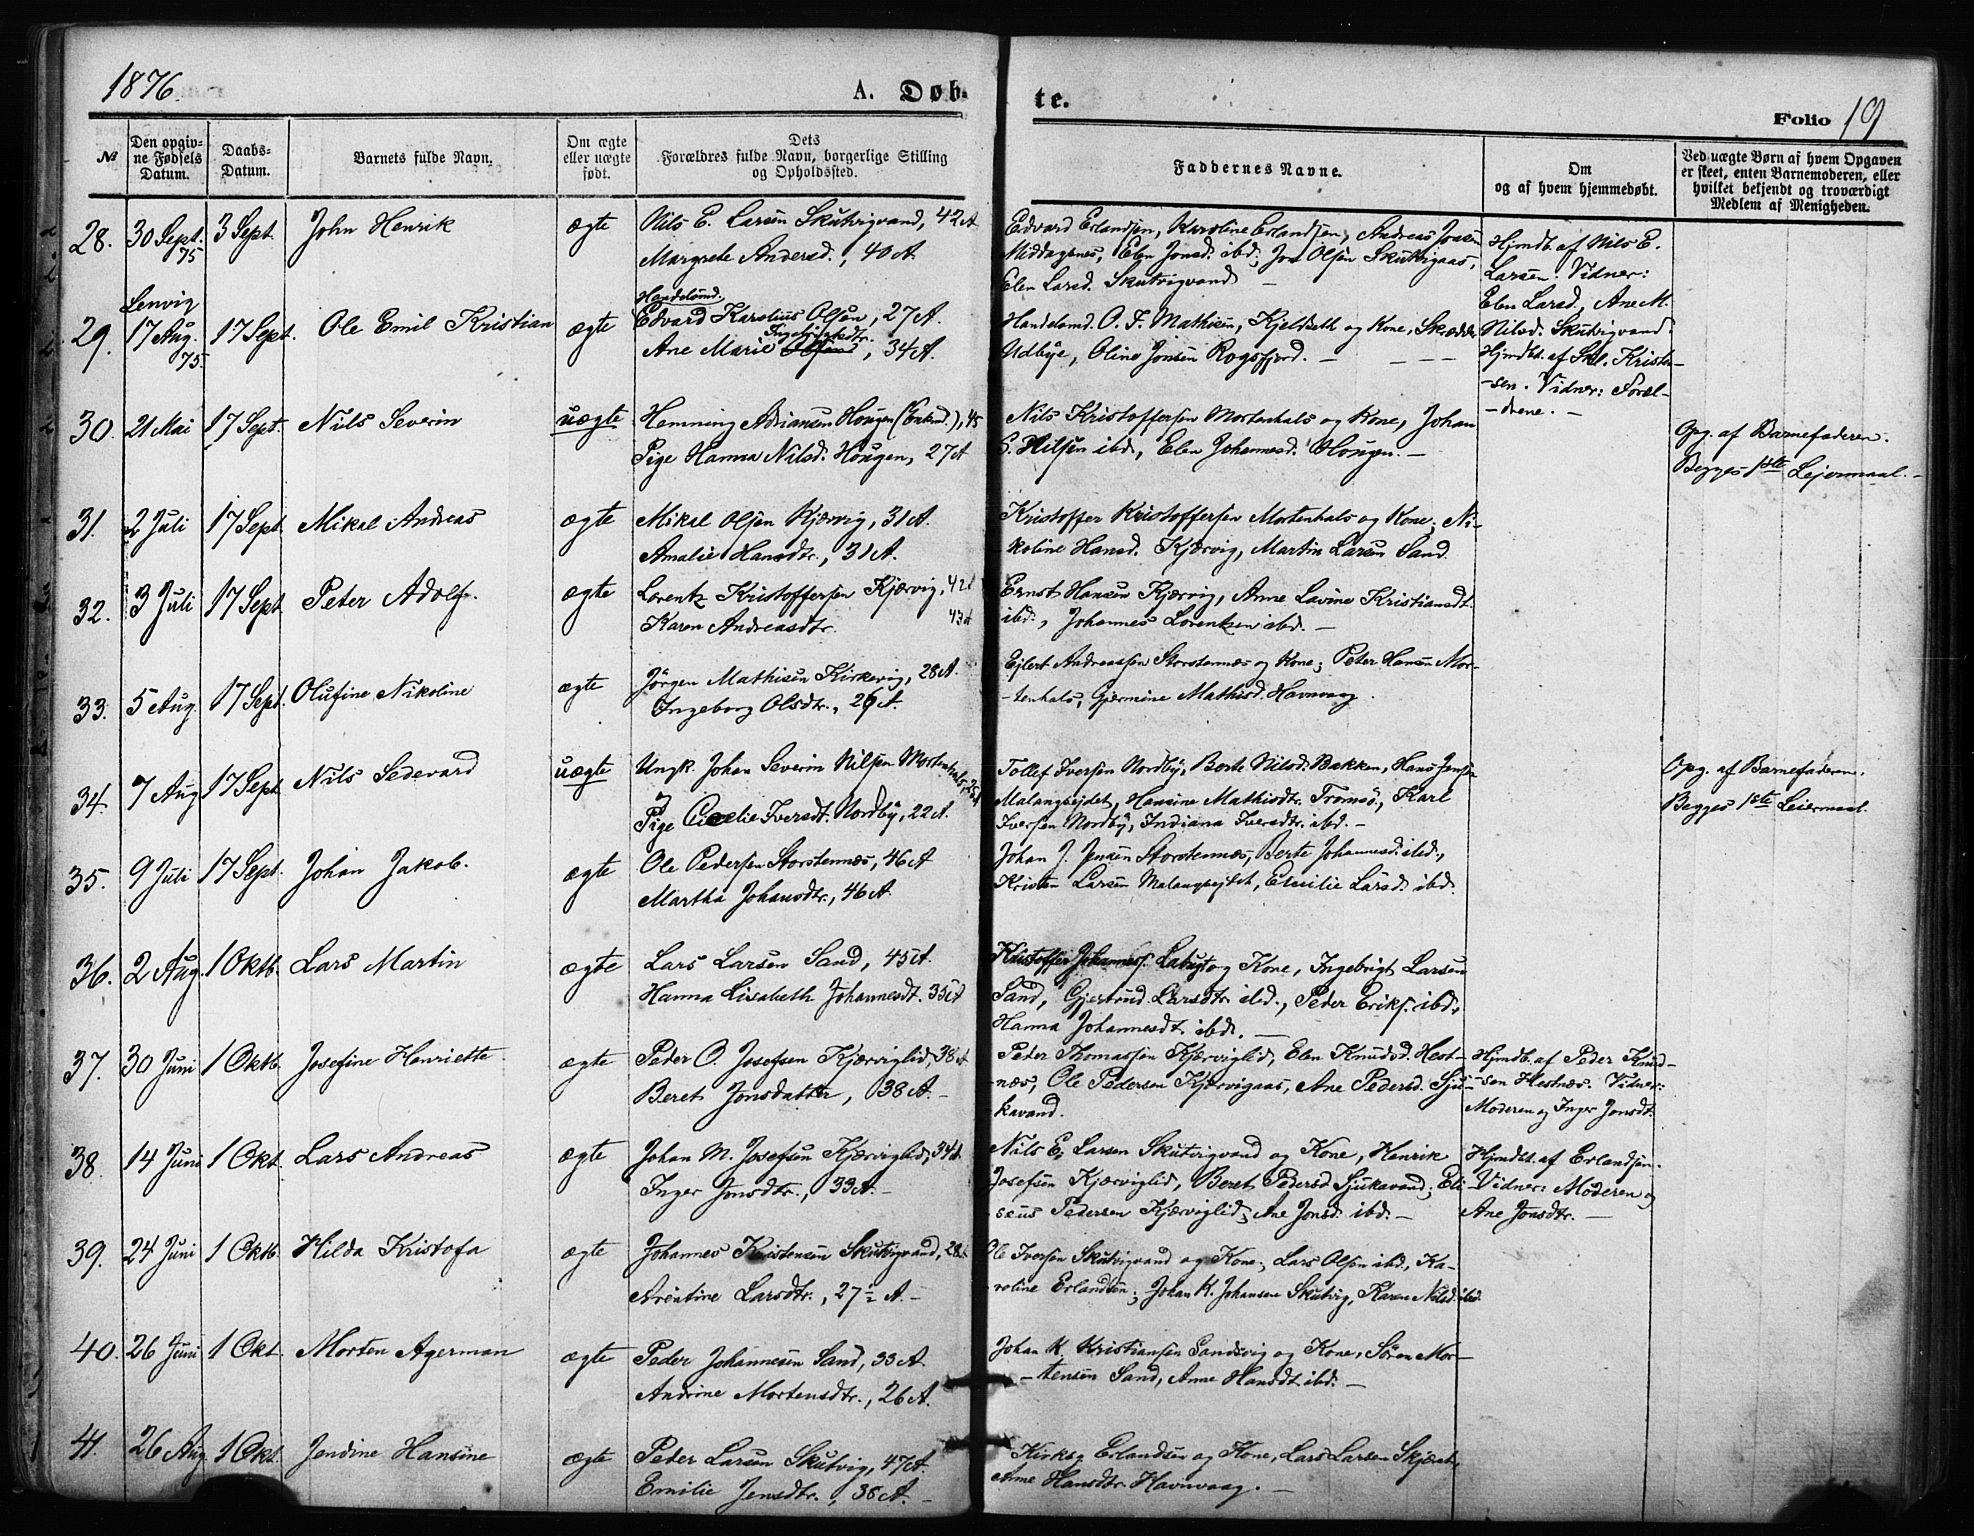 1876.
A. Døb-
te.
Folio 19
№
Den opgiv-
ne Fødsels
Datum.
Daabs-
Datum.
Barnets fulde Navn.
Om ægte
eller uægte
født.
Dets
Forældres fulde Navn, borgerlige Stilling
og Opholdssted.
Faddernes Navne.
Om
og af hvem hjemmedøbt.
Ved uægte Børn af hvem Opgaven
er skeet, enten Barnemoderen, eller
hvilket bekjendt og troværdigt
Medlem af Menigheden.
28. 30 Sept. 75 3 Sept. John Henrik ægte
Nils E. Larsen Skutvigvand, 42 A
Margrete Andersd., 40 A.
Edvard Erlandsen, Karoline Erlandsen, Andreas Jonsen
Middagsnes, Elen Jonsd. ibd., Jon Olsen Skutvigaas,
Elen Larsd. Skutvigvand –
Hjmdb. af Nils E.
Larsen. Vidner:
Elen Larsd, Ane M.
Nilsd. Skutvigvand.
29. Lenvig
17 Aug. 75. 17 Sept. Ole Emil Kristian ægte
Handelsmd.
Edvard Karelius Olsen, 27 A.
Ane Marie Ingebrigtsdtr., 34 A.
Handelsmd. O. F. Mathisen, Kjeldseth og Kone, Skrædder
Udbye, Oline Jonsen Rossfjord. –
Hjmdbt. af Skl. Kristen-
-sen. Vidner: Foræl-
-drene. –
30. 21 Mai 17 Sept. Nils Severin uægte
Hemming Adriansen Hougen (Enkmd.), 45
Pige Hanna Nilsd. Hougen, 27 A
Nils Kristoffersen Mortenhals og Kone, Johan
S. Nilsen ibd., Elen Johannesd. Hougen. –
Opg. af Barnefaderen.
Begges 1ste Lejermaal. –
31. 2 Juli 17 Sept. Mikal Andreas ægte
Mikal Olsen Kjærvig, 31 A.
Amalie Hansdtr., 31 A.
Kristoffer Kristoffersen Mortenhals og Kone, Ni-
-koline Hansd. Kjærvig, Martin Larsen Sand.
32. 3 Juli 17 Sept. Peter Adolf. ægte
Lorentz Kristoffersen Kjærvig, 42 A
Karen Andreasdtr. 43 A
Ernst Hansen Kjærvig, Anne Lavine Kristiansdt.
ibd., Johannes Lorentzen ibd. –
33. 5 Aug. 17 Sept. Olufine Nikoline ægte
Jørgen Mathisen Kirkevig, 28 A.
Ingeborg Olsdtr., 26 A.
Ejlert Andreassen Storstennæs og Kone; Peter Hansen Mor-
-tenhals, Gjærmine Mathisd. Havnvaag.
34. 7 Aug 17 Sept. Nils Sedevard uægte
Ungk. Johan Severin Nilsen Mortenhals, 25 A
Pige Cicelie Iversdt. Nordby, 22 A.
Tollef Iversen Nordby, Berte Nilsd. Bakken, Hans Jensen
Malangsejdet, Hansine Mathisdtr. Tromsø, Karl
Iversen Nordby, Indiana Iversdtr. ibd. –
Opg. af Barnefaderen.
Begges 1ste Leiermaal.
35. 9 Juli 17 Sept. Johan Jakob. ægte
Ole Pedersen Storstennæs, 46 A
Martha Johansdtr., 46 A.
Johan J. Jensen Storstennæs, Berte Johannesd. ibd.,
Kristen Larsen Malangsejdet, Emilie Larsd. ibd.
36. 2 Aug. 1 Oktb. Lars Martin ægte
Lars Larsen Sand, 45 A.
Hanna Lisabeth Johannesdt. 35 A
Kristoffer Johanness. og Kone, Ingebrigt Larsen
Sand, Gjertrud Larsdtr. ibd., Peder Eriks. ibd.,
Hanna Johannesdt. ibd. –
37. 30 Juni 1 Oktb. Josefine Henriette ægte
Peder O. Josefsen Kjærviglid, 38 A
Beret Jonsdatter, 38 A. –
Peder Thomassen Kjærviglid, Elen Knudsd. Hest-
-næs, Ole Pedersen Kjærvigaas, Ane Pedersd. Sju-
-kavand.
Hjmdb. af Peder Knud-
-sen Hestnæs. Vidner:
Moderen og Inger Jonsdt.
38. 14 Juni 1 Okt. Lars Andreas ægte
Johan M. Josefsen Kjærviglid, 34 A.
Inger Jonsdtr., 33 A. –
Nils E. Larsen Skutvigvand og Kone, Henrik
Josefsen Kjærviglid, Beret Pedersd Sjukavand; Eli-
-seus Pedersen Kjærviglid, Ane Jonsd. ibd. –
Hjmdbt. af Erlandsen.
Vidner: Moderen og
Ane Jonsdtr. –
39. 24 Juni 1 Oktb. Hilda Kristofa ægte
Johannes Kristensen Skutvigvand, 28
Arentine Larsdtr., 27½ A. –
Ole Iversen Skutvigvand og Kone, Lars Olsen ibd., Ka-
-roline Erlandsen; Johan K. Johansen Skutvig, Karen Nilsd. ibd.
40. 26 Juni 1 Okt. Morten Agerman ægte
Peder Johannesen Sand, 33 A.
Andrine Mortensdtr., 26 A.
Johan K. Kristiansen Sandsvig og Kone, Søren Mor-
-tensen Sand, Anne Hansdt. ibd. –
41. 26 Aug. 1 Okt. Jendine Hansine ægte
Peder Larsen Skutvig, 47 A.
Emilie Jensdtr., 38 A. –
Kirks. Erlandsen og Kone, Lars Larsen
Anne Hansdtr. Havnvaag. –